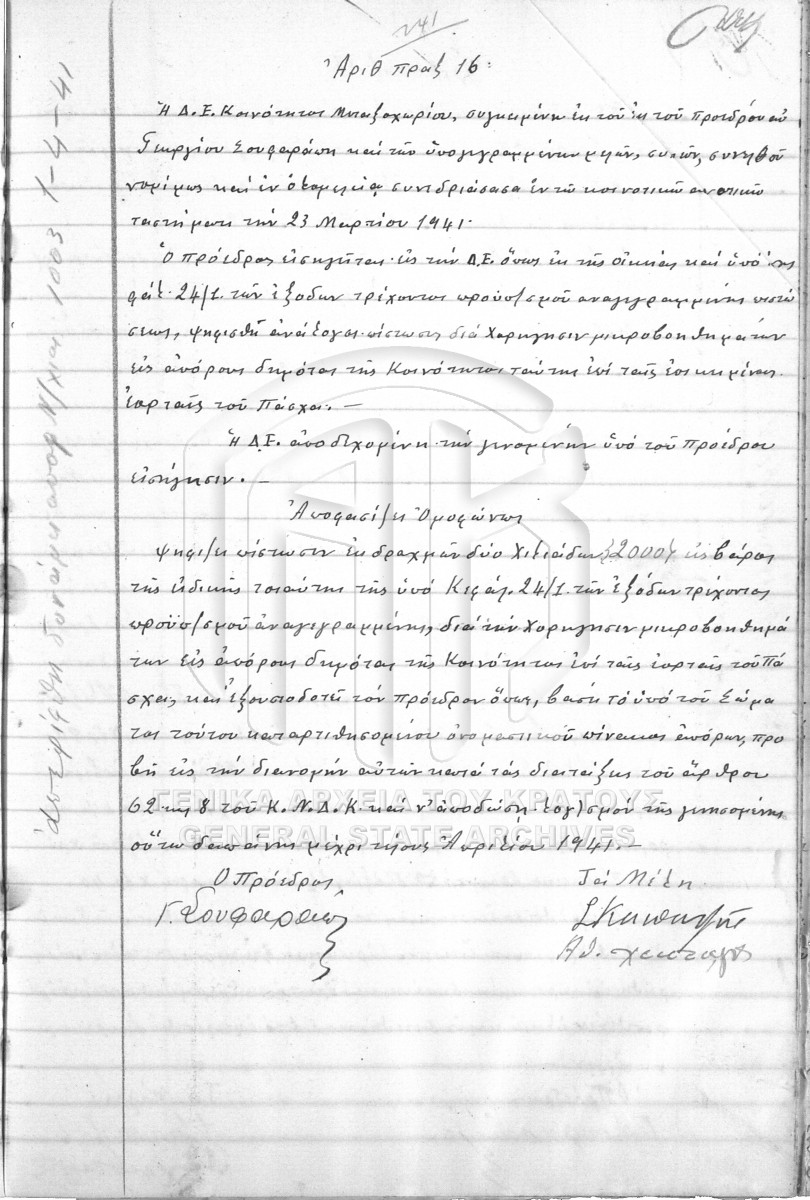 241
Ἀριθ πραξ 16:
Ἡ Δ. Ε. Κοινότητος Μεταξοχωρίου, συγκειμένη ἐκ τοῦ ἐκ τοῦ προέδρου αὐ
Γεωργίου Σουφαράπη καὶ τῶν ὑπογεγραμμένων μελῶν, συνελθοῦ
νομίμως καὶ ἐν ὁλομελείᾳ συνεδριάσασα ἐν τῷ κοινοτικῷ
ταστήματι τὴν 23 Μαρτίου 1941.
Ὁ πρόεδρος εἰσηγεῖται εἰς τὴν Δ.Ε. ὅπως ἐκ τῆς οἰκείας καὶ ὑπὸ
24/1. τῶν ἐξόδων τρέχοντος προϋπ/σμοῦ ἀναγεγραμμένης πιστώ
σεως, ψηφισθῇ ἀνάλογος πίστωσις διὰ χορήγησιν μικροβοηθημάτων
εἰς ἀπόρους δημότας τῆς Κοινότητος ταύτης ἐπὶ ταῖς ἐπικειμέναις
ἑορταῖς τοῦ Πάσχα. —
Ἡ Δ.Ε. ἀποδεχομένη τὴν γενομένην ὑπὸ τοῦ προέδρου
εἰσήγησιν. —
Ἀποφασίζει Ὁμοφώνως
Ψηφίζει πίστωσιν ἐκ δραχμῶν δύο χιλιάδων (2000) εἰς βάρος
τῆς εἰδικῆς τοιαύτης τῆς ὑπὸ Κεφάλ. 24/1. τῶν ἐξόδων τρέχοντος
προϋπ/σμοῦ ἀναγεγραμμένης, διὰ τὴν χορήγησιν μικροβοηθημά
των εἰς ἀπόρους δημότας τῆς Κοινότητος ἐπὶ ταῖς ἑορταῖς τοῦ Πά
σχα, καὶ ἐξουσιοδοτεῖ τὸν πρόεδρον ὅπως, βάσει τὸ ὑπὸ τοῦ Σώμα
τος τούτου καταρτισθησομένου ὀνομαστικοῦ πίνακος ἀπόρων, προ
βῇ εἰς τὴν διανομὴν αὐτῶν κατὰ τὰς διατάξεις τοῦ ἄρθρου
62 τῆς 8 τοῦ Κ. Ν. Δ. Κ. καὶ ν' ἀποδώσῃ λογ)σμὸν τῆς γενησομένης
οὕτω δαπάνης μέχρι τέλους Ἀπριλίου 1941. —
Ὁ Πρόεδρος
Τὰ Μέλη
Γ. Σουφαράπης
Ἀθ.
1003 1-4-41
ΓΕΝΙΚΑ ΑΡΧΕΙΑ ΤΟΥ ΚΡΑΤΟΥΣ
GENERAL STATE ARCHIVES